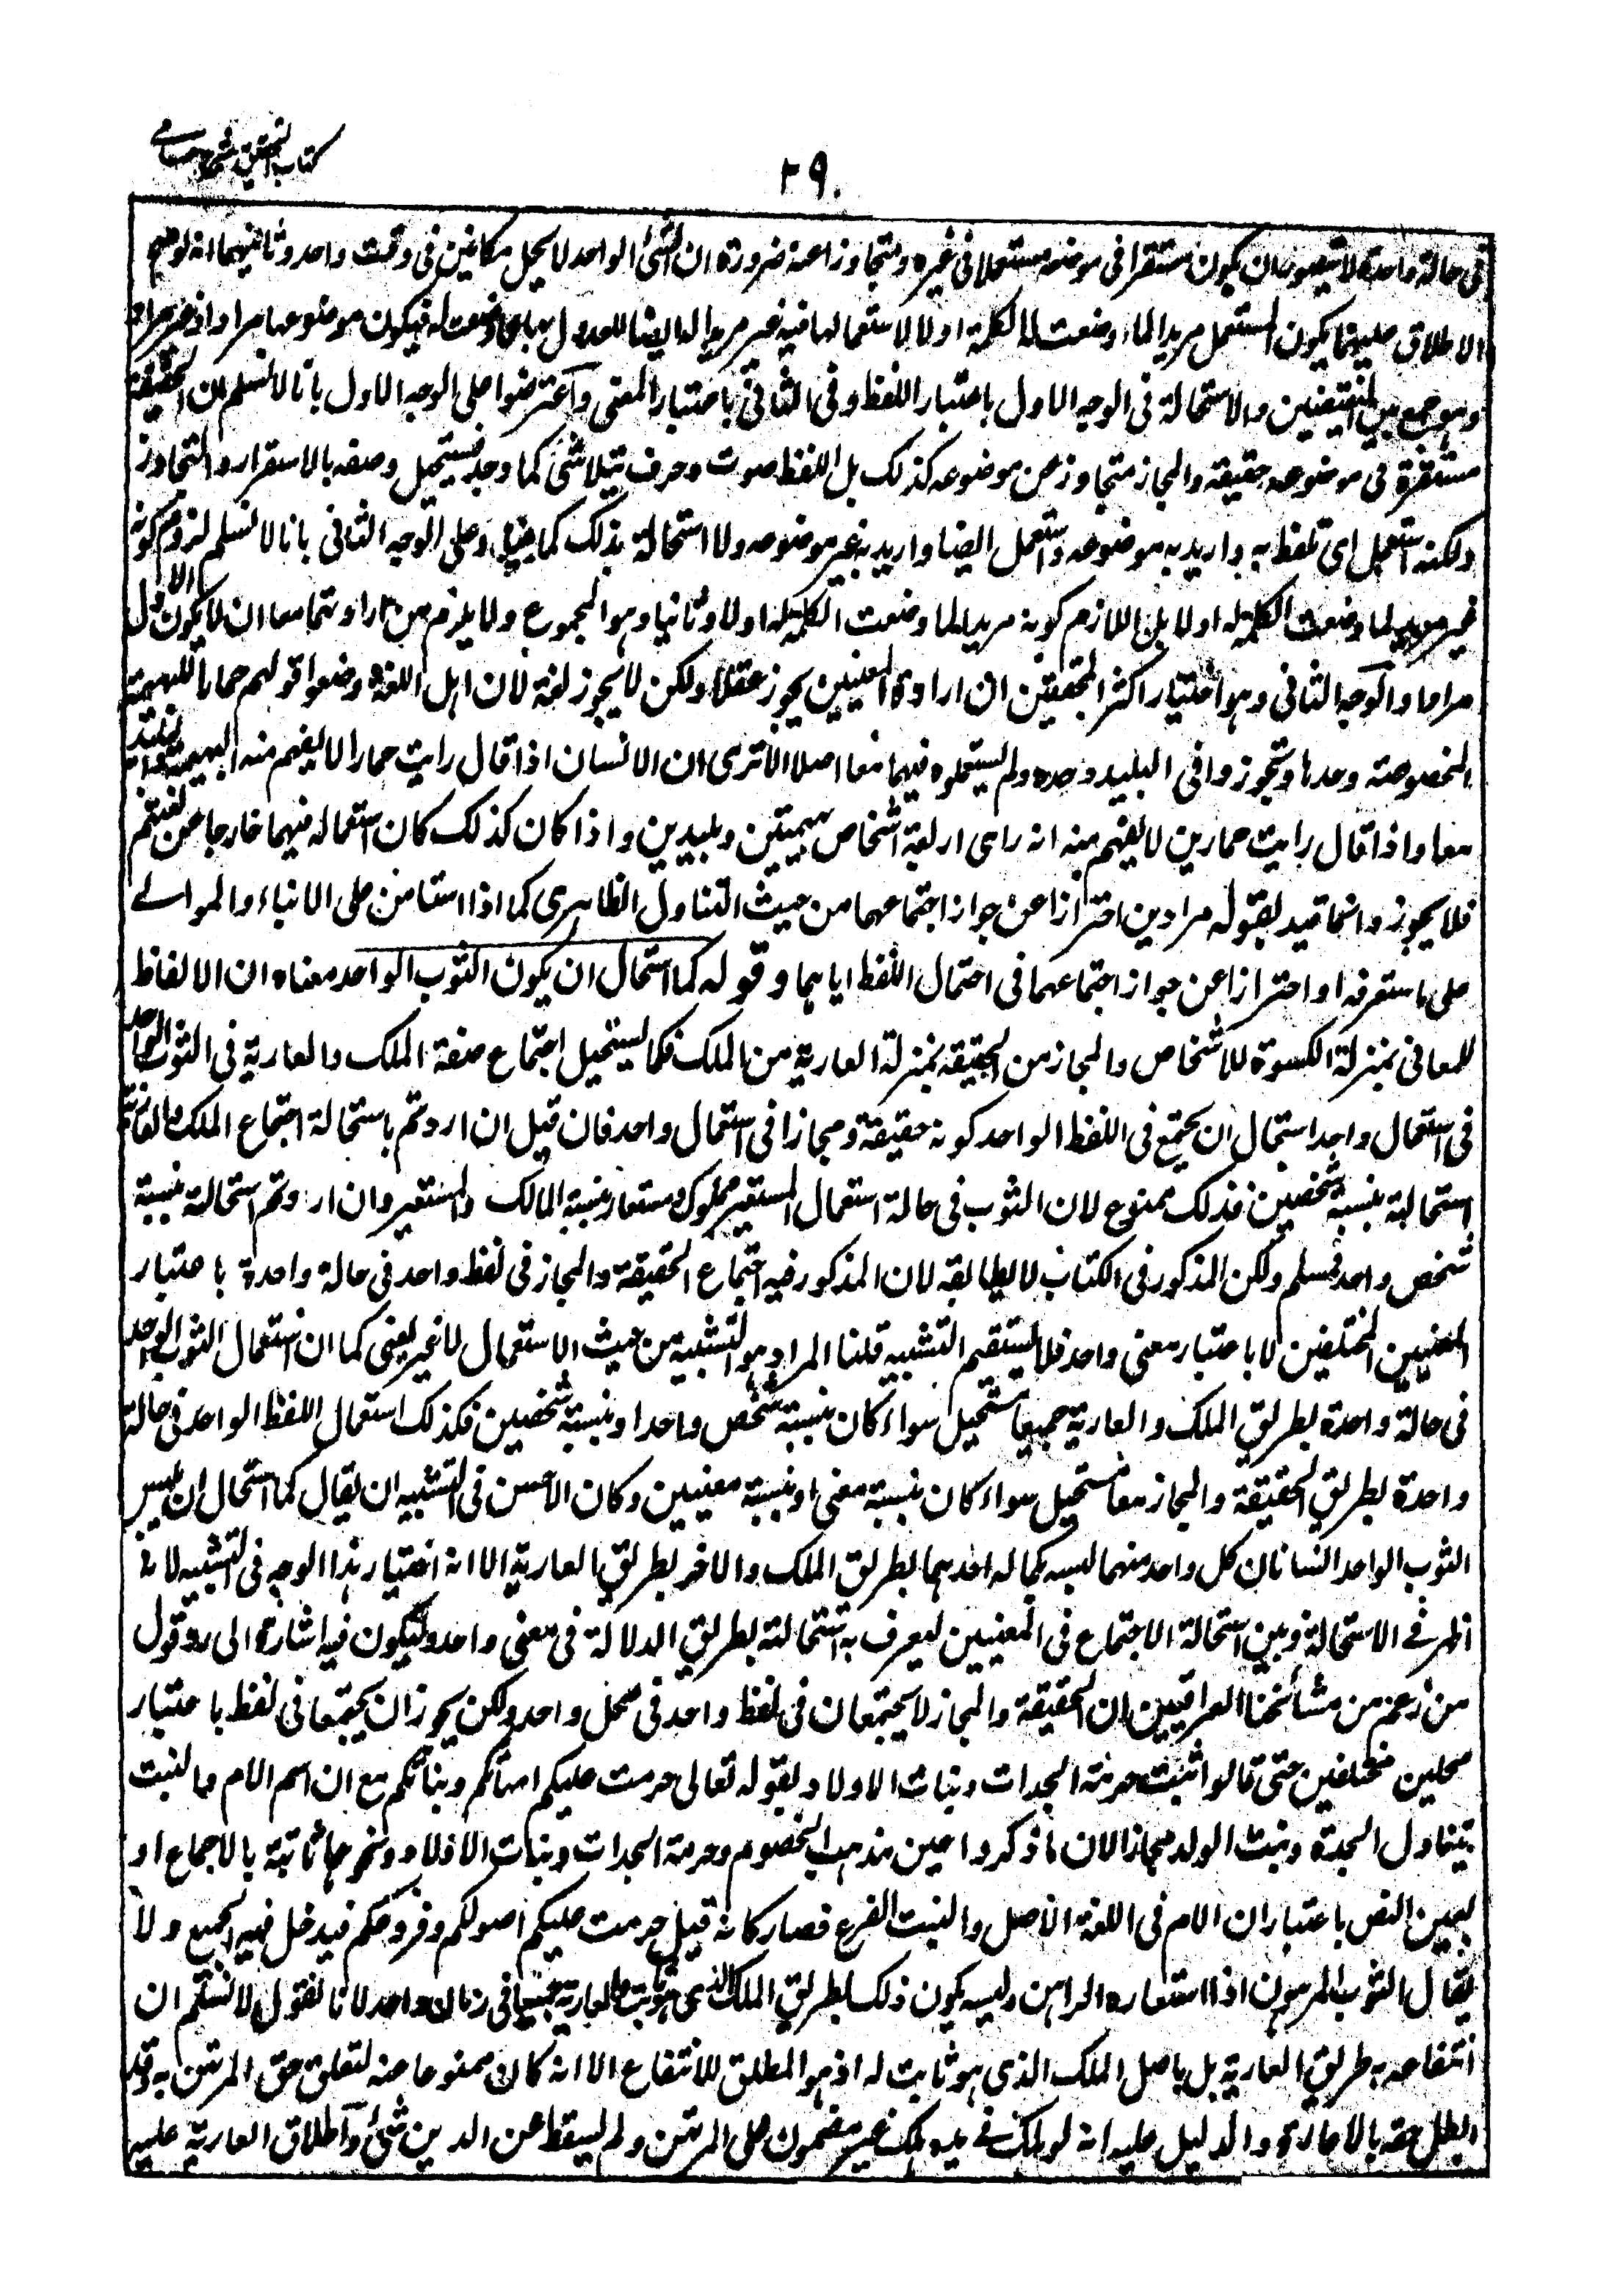 كتاب التحقيق شرح حسامى
٢٩٠
فى حالة واحدة لا يتصور ان يكون مستقرا فى موضعه مستعملا فى غيره ومتجاوزا عنه ضرورة ان الشئ الواحد لا يحل مكانين فى وقت واحد وثانيهما انه لو صح
الاطلاق عليهما يكون المستعمل مريدا لما وضعت له الكلمة اولا لاستعمالها فيه غير مريد له ايضا للعدول بها عما وضعت له فيكون موضوعها مرادا غير مراد
وهو جمع بين النقيضين والاستحالة فى الوجه الاول باعتبار اللفظ وفى الثانى باعتبار المعنى واعترضوا على الوجه الاول بانا لا نسلم ان الحقيقة
مستقرة فى موضوعه حقيقة والمجاز متجاوز عن موضوعه كذلك بل اللفظ صوت وحرف يتلاشى كما وجد فيستحيل وصفه بالاستقرار والتجاوز
ولكنه استعمل اى تلفظ به واريد به موضوعه واستعمل ايضا واريد به غير موضوعه ولا استحالة بذلك كما بينا وعلى الوجه الثانى بانا لا نسلم لزوم كونه
غير مريد لما وضعت الكلمة له اولا بل اللازم كونه مريدا لما وضعت الكلمة له اولا وثانيا وهو المجموع ولا يلزم من ارادتهما معا ان لا يكون الاول
مرادا والوجه الثانى وهو اختيار اكثر المحققين ان ارادة المعنيين يجوز عقلا ولكن لا يجوز لغة لان اهل اللغة وضعوا قولهم حمارا للبهيمة
المخصوصة وحدها وتجوزوا فى البليد وحده ولم يستعملوه فيهما معا اصلا الا ترى ان الانسان اذا قال رايت حمارا لا يفهم منه البهيمة والبليد
معا واذا قال رايت حمارين لا يفهم منه انه راى اربعة اشخاص بهيمتين وبليدين واذا كان كذلك كان استعماله فيهما خارجا عن لغتهم
فلا يجوز وانما قيد بقوله مرادين احترازا عن جواز اجتماعهما من حيث التناول الظاهرى كما اذا استامن على الابناء والموالے
على ما ستعرفه او احترازا عن جواز اجتماعهما فى احتمال اللفظ اياهما وقوله كما استحال ان يكون الثوب الواحد معناه ان الالفاظ
للمعانى بمنزلة الكسوة للاشخاص والمجاز من الحقيقة بمنزلة العارية من الملك فكما يستحيل اجتماع صفة الملك والعارية فى الثوب الواحد
فى استعمال واحد استحال ان يجتمع فى اللفظ الواحد كونه حقيقة ومجازا فى استعمال واحد فان قيل ان اردتم باستحالة اجتماع الملك والعارية
استحالته بنسبة شخصين فذلك ممنوع لان الثوب فى حالة استعمال المستعير مملوك ومستعار بنسبة المالك والمستعير وان اردتم استحالته بنسبة
شخص واحد فمسلم ولكن المذكور فى الكتاب لا يطابقه لان المذكور فيه اجتماع الحقيقة والمجاز فى لفظ واحد فى حالة واحدة باعتبار
المعنيين المختلفين لا باعتبار معنى واحد فلا يستقيم التشبيه قلنا المراد هو التشبيه من حيث الاستعمال لا غير يعنى كما ان استعمال الثوب الواحد
فى حالة واحدة بطريق الملك والعارية جميعا مستحيل سواء كان بنسبة شخص واحد او بنسبة شخصين فكذلك استعمال اللفظ الواحد فى حالة
واحدة بطريق الحقيقة والمجاز معا مستحيل سواء كان بنسبة معنى او بنسبة معنيين وكان الاحسن فى التشبيه ان يقال كما استحال ان يلبس
الثوب الواحد انسانان كل واحد منهما لبسه بكماله احدهما بطريق الملك والاخر بطريق العارية الا انه اختيار هذا الوجه فى التشبيه لانه
اظهر فے الاستحالة وبين استحالة الاجتماع فى المعنيين ليعرف به استحالته بطريق الدلالة فى معنى واحد وليكون فيه اشارة الى رد قول
من زعم من مشائخنا العراقيين ان الحقيقة والمجاز لا يجتمعان فى لفظ واحد فى محل واحد ولكن يجوز ان يجتمعا فى لفظ باعتبار
محلين مختلفين حتى قالوا اثبتت حرمة الجدات وبنات الاولاد بقوله تعالى حرمت عليكم امهاتكم وبناتكم مع ان اسم الام والبنت
يتناول الجدة وبنت الولد مجازا لان ما ذكروا عين مذهب الخصوم وحرمة الجدات وبنات الاولاد ونحوها ثابتة بالاجماع او
بعين النص باعتبار ان الام فى اللغة الاصل والبنت الفرع فصار كانه قيل حرمت عليكم اصولكم وفروعكم فيدخل فيه الجميع ولا
يقال الثوب المرهون اذا استعاره الراهن ولبسه يكون ذلك بطريق الملك الذى هو ثابت والعارية جميعا فى زمان واحد لانا نقول لا نسلم ان
انتفاعه بطريق العارية بل باصل الملك الذى هو ثابت له اذ هو المطلق للانتفاع الا انه كان ممنوعا عنه لتعلق حق المرتهن به وقد
ابطل حقه بالاعارة والدليل عليه انه لو هلك فے يده هلك غير مضمون على المرتهن ولم يسقط عن الدين شئ واطلاق العارية عليه